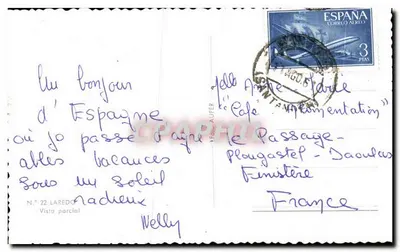 Un bonjour
d'Espagne
où je passe d'agré
ables vacances
sous un soleil
radieux
Nelly
Nº 22 LAREDO
Vista parcial
ESPAÑA
CORREO AEREO
3
PTAS
(SANTANDER)
Melle
"Café Alimentation"
le Passage
Plougastel-Daoulas
Finistère
France